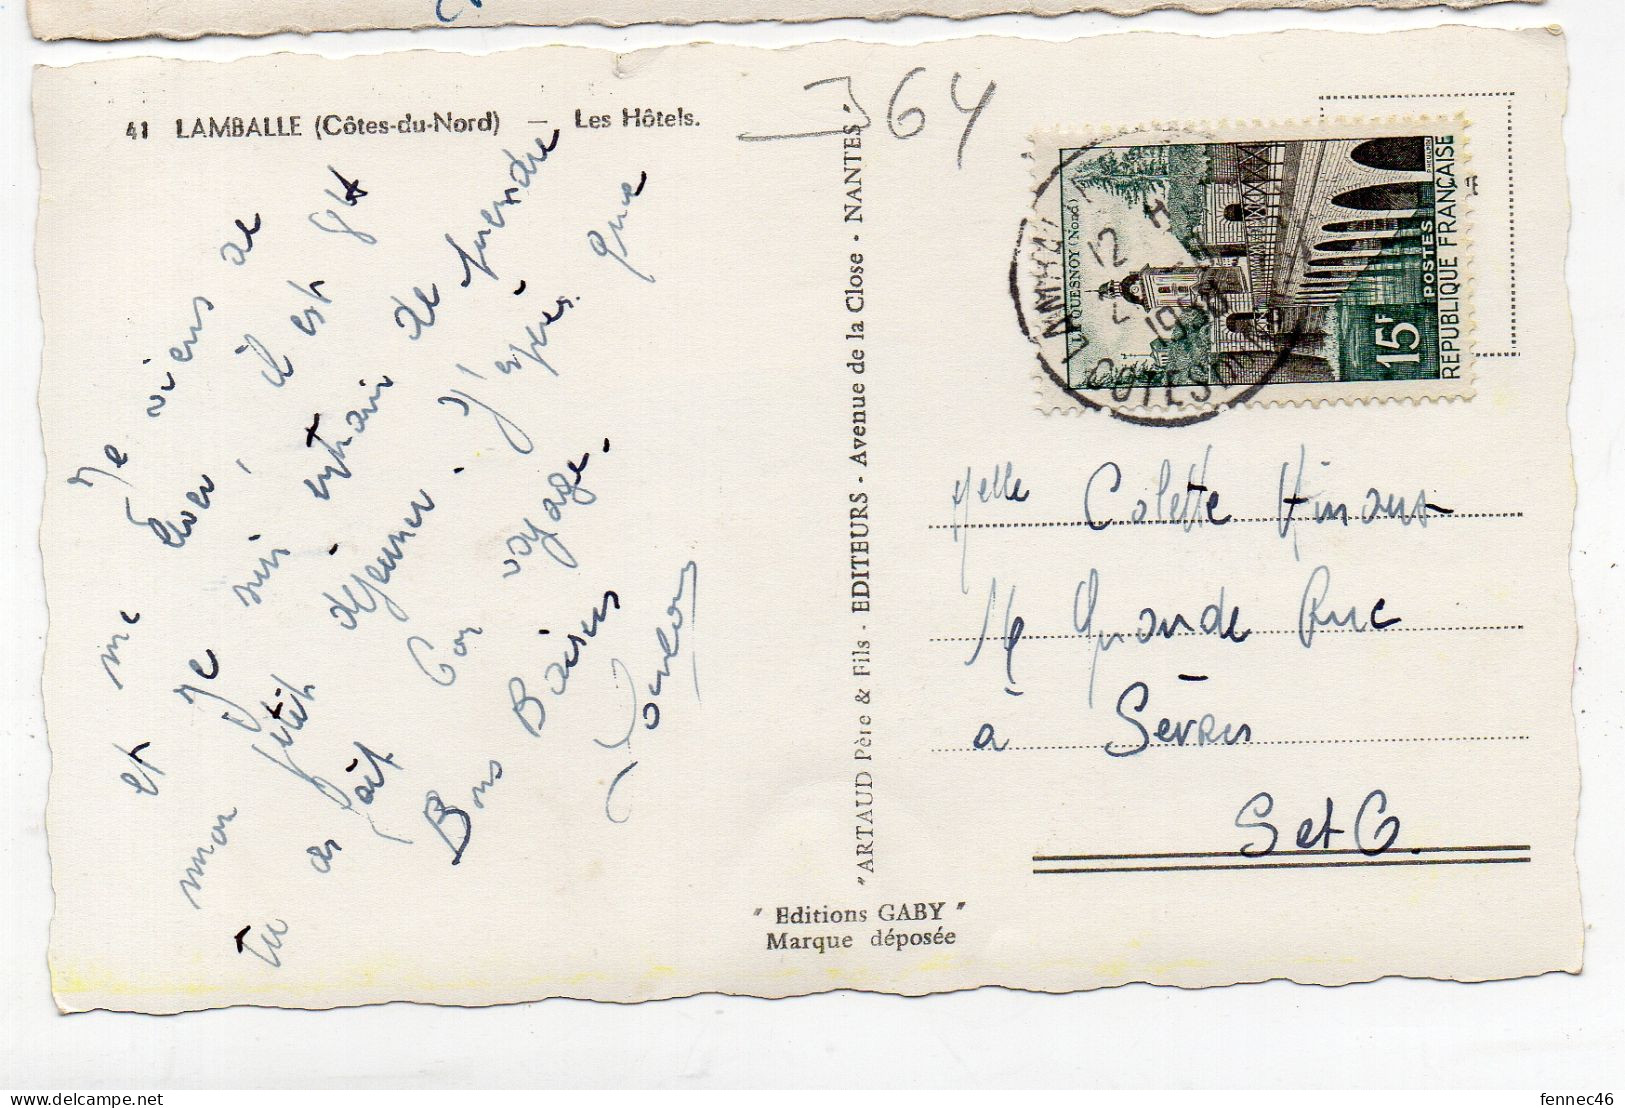 41 LAMBALLE (Côtes-du-Nord) — Les Hôtels.
364
Je viens de
me lever, il est 8H
et je suis entrain de prendre
mon petit déjeuner. J'espère que
tu as fait bon voyage.
Bons Baisers
"ARTAUD Père & Fils - EDITEURS - Avenue de la Close - NANTES"
" Editions GABY "
Marque déposée
LE QUESNOY (Nord)
15F
POSTES
REPUBLIQUE FRANÇAISE
12 H
1958
COTES DU
Melle Colette
16 Grande Rue
à Sèvres
S et O.
delcampe.net
fennec46